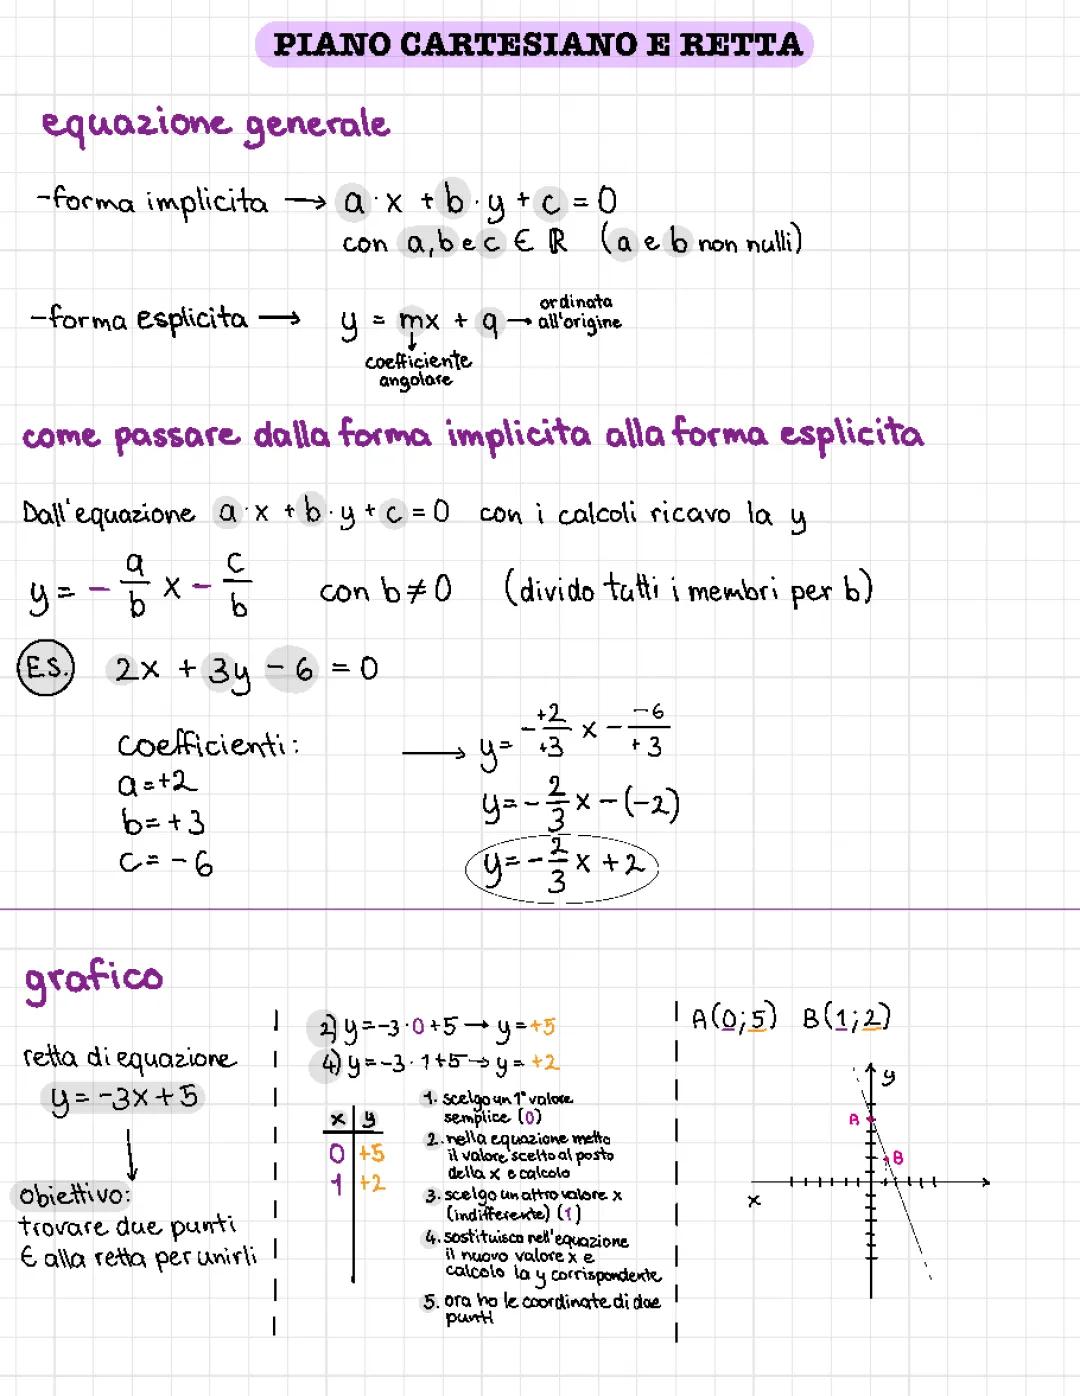 PIANO CARTESIANO E RETTA
equazione generale
-forma implicita → a·x + b·y + c = 0
con a, b e c ∈ ℝ (a e b non nulli)
-forma esplicita → y = mx + q → ordinata all'origine
↓
coefficiente
angolare
come passare dalla forma implicita alla forma esplicita
Dall'equazione a·x + b·y + c = 0 con i calcoli ricavo la y
y = - a/b x - c/b con b ≠ 0 (divido tutti i membri per b)
E.S. 2x + 3y - 6 = 0
coefficienti:
a = +2
b = +3
c = - 6
→ y = - +2/+3 x - -6/+3
y = - 2/3 x - (-2)
y = - 2/3 x + 2
grafico
retta di equazione
y = -3x + 5
↓
obiettivo:
trovare due punti
∈ alla retta per unirli
2) y = -3·0 + 5 → y = +5
4) y = -3·1 + 5 → y = +2
x | y
0 | +5
1 | +2
1. scelgo un 1° valore
semplice (0)
2. nella equazione metto
il valore scelto al posto
della x e calcolo
3. scelgo un altro valore x
(indifferente) (1)
4. sostituisco nell'equazione
il nuovo valore x e
calcolo la y corrispondente
5. ora ho le coordinate di due
punti
A(0;5) B(1;2)
y
A
B
x